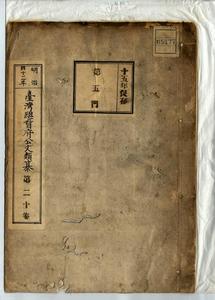 十五年保存
第五門
明治
四十三年
臺灣總督府公文類纂
第二十卷